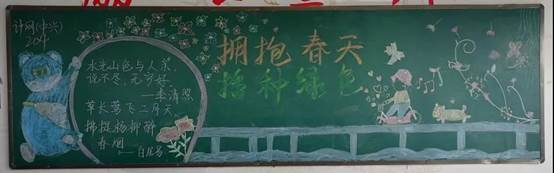 计网(中兴)
拥抱 春天
播种绿色
水光山色与人亲,
说不尽,无穷好
——李清照
草长莺飞二月天
拂堤杨柳醉
春烟
——白居易